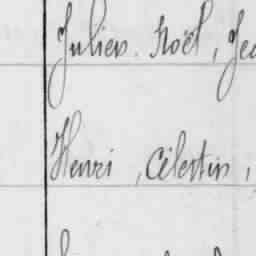 Julien. Noël, Je
Henri, Célestin,